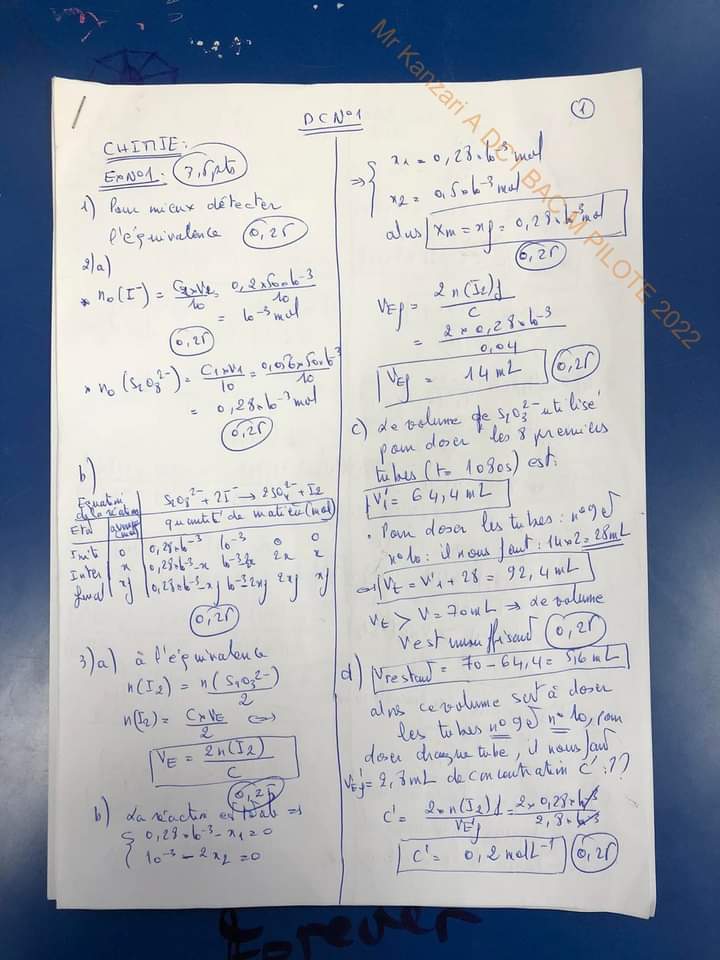 DC N°1
1
Mr Kanzari A DC1 BAC M PILOTE 2022
CHIMIE:
EXN°1. 3,5pts
1) Pour mieux détecter
l'équivalence 0,25
2/a)
* n₀(I⁻) = C₂×V₂/10 = 0,2×50×10⁻³/10
= 10⁻³ mol
0,25
* n₀(S₂O₈²⁻) = C₁×V₁/10 = 0,056×50×10⁻³/10
= 0,28×10⁻³ mol
0,25
b)
Equation de la réaction S₂O₈²⁻ + 2I⁻ → 2SO₄²⁻ + I₂
Etat avanc (mol) quantité de matière (mol)
Initi 0 0,28×10⁻³ 10⁻³ 0 0
Inter x 0,28×10⁻³-x 10⁻³-2x 2x x
final xf 0,28×10⁻³-xf 10⁻³-2xf 2xf xf
0,25
3)a) à l'équivalence
n(I₂) = n(S₂O₃²⁻)/2
n(I₂) = C×VE/2 ⇔
VE = 2n(I₂)/C
0,25
b) La réaction est totale ⇒
{ 0,28×10⁻³ - x₁ = 0
{ 10⁻³ - 2x₂ = 0
⇒ { x₁ = 0,28×10⁻³ mol
x₂ = 0,5×10⁻³ mol
alors xm = xf = 0,28×10⁻³ mol
0,25
VEf = 2n(I₂)f/C
= 2×0,28×10⁻³/0,04
VEf = 14 mL 0,25
c) Le volume de S₂O₃²⁻ utilisé
pour doser les 8 premiers
tubes (t = 1080s) est:
V'₁ = 64,4 mL
. Pour doser les tubes: n°9 et
n°10: il nous faut: 14×2 = 28mL
⇒ Vt = V'₁ + 28 = 92,4 mL
Vt > V = 70mL → Le volume
V est insuffisant 0,25
d) Vrestant = 70 - 64,4 = 5,6 mL
alors ce volume sert à doser
les tubes n°9 et n°10, pour
doser chaque tube, il nous faut
V'Ef = 2,8mL de concentration C' : ??
C' = 2×n(I₂)f/V'Ef = 2×0,28×10⁻³/2,8×10⁻³
C' = 0,2 molL⁻¹ 0,25
Forever